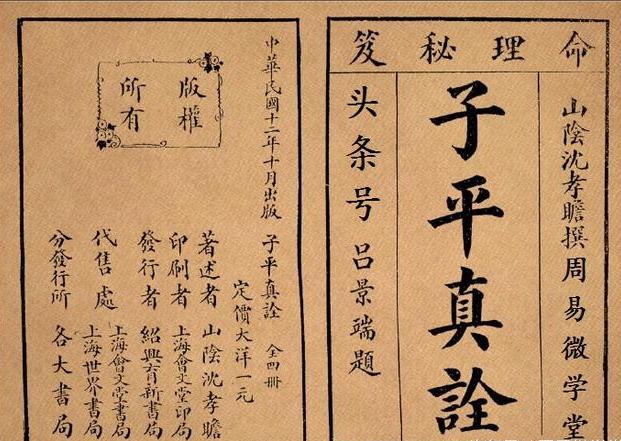 命理秘笈
山陰沈孝瞻撰周易微学堂
子平真詮
头条号呂景端題
中華民國十二年十月出版 子平真詮 全四冊
定價大洋一元
版權
所有
著述者 山陰沈孝瞻
印刷者 上海會文堂印局
發行者 紹興育新書局
代售處 上海會文堂書局
上海世界書局
分發行所 各大書局